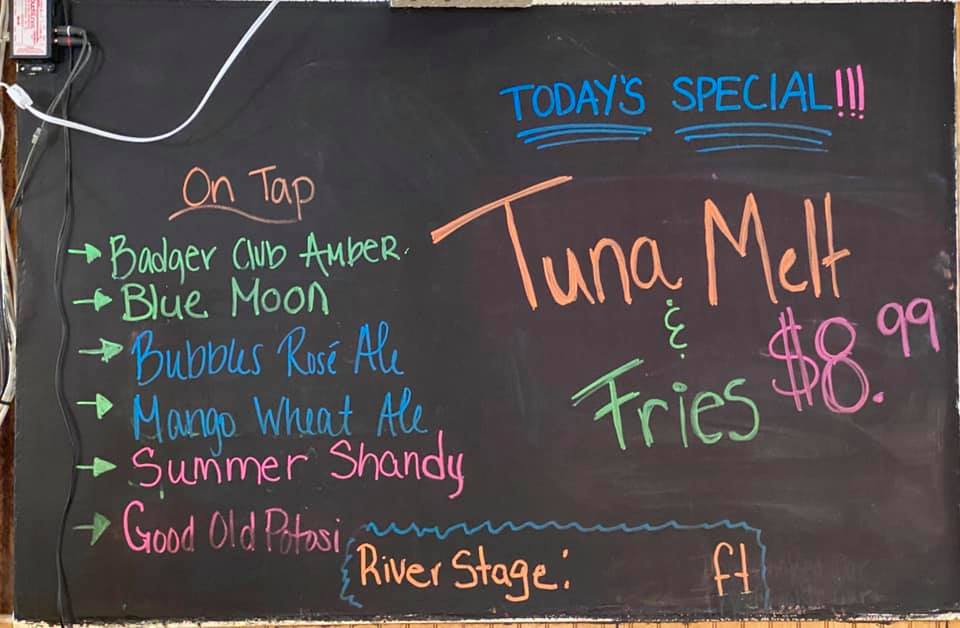 TODAY'S SPECIAL!!!
Tuna Melt
&
Fries $8.99
On Tap
→ Badger Club Amber.
→ Blue Moon
→ Bubbles Rosé Ale
→ Mango Wheat Ale
→ Summer Shandy
→ Good Old Potosi
River Stage: ft